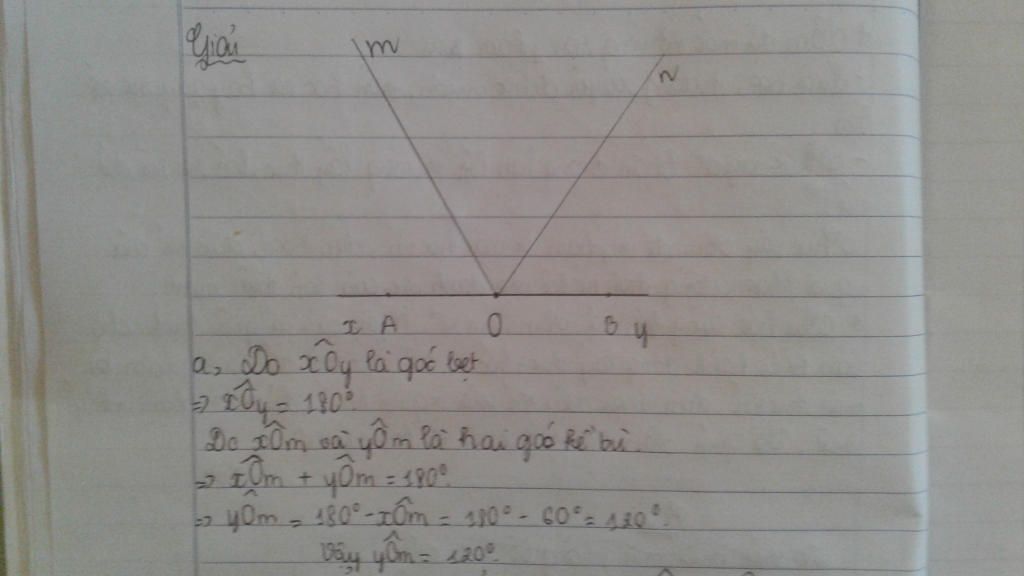 Giải
m
n
x A O B y
a, Do xÔy là góc bẹt
=> xÔy = 180°.
Do xÔm và yÔm là hai góc kề bù.
=> xÔm + yÔm = 180°.
=> yÔm = 180° - xÔm = 180° - 60° = 120°.
Vậy yÔm = 120°.